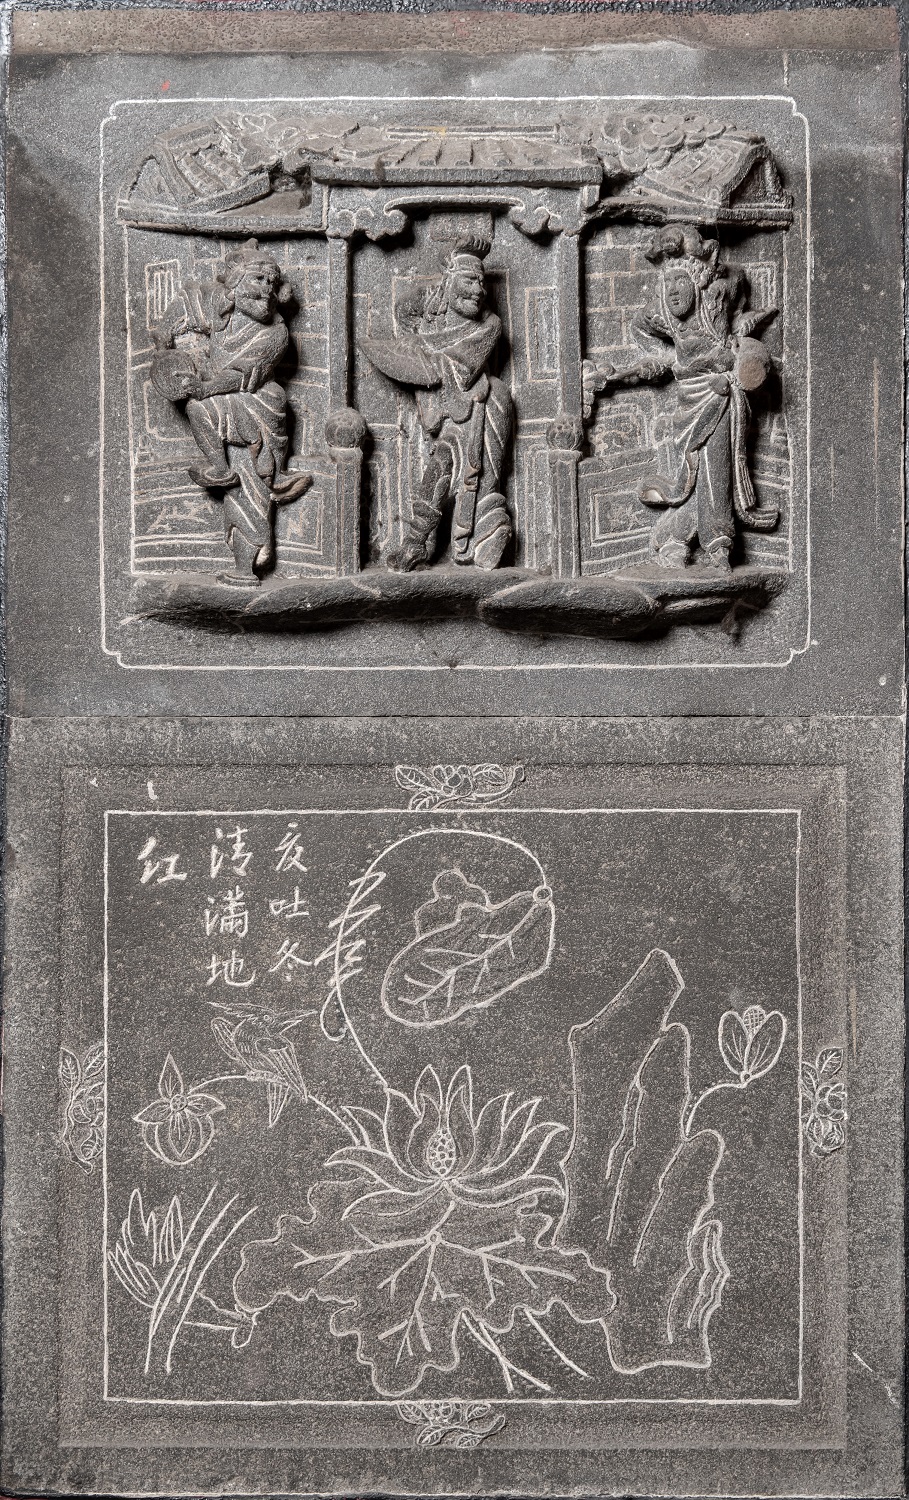 吐冬
清滿地
红